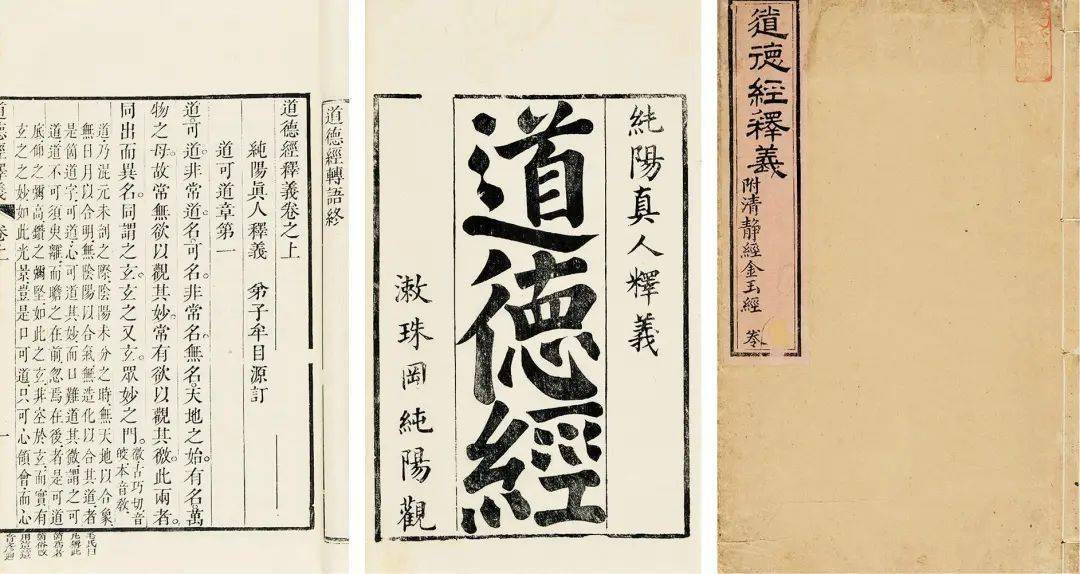 道德經轉語終
道德經釋義卷之上
純陽眞人釋義　弟子牟目源訂
道可道章第一
道可道。非常道。名可名。非常名。無名。天地之始。有名。萬
物之母。故常無欲以觀其妙。常有欲以觀其徼。此兩者。
同出而異名。同謂之玄。玄之又玄。眾妙之門。
徼古巧切音
皎本音敎
道乃混元未剖之際陰陽未分之時無天地以合象
無日月以合明無陰陽以合氣無造化以合其道者
是箇道字可道心可道其妙而口難道其微謂之可
道道不可須臾離而瞻之在前忽焉在後者是可道
底仰之彌高鑽之彌堅如此之玄非空於玄而實有
玄之之妙如此光景豈是口可道只可心領會而心
道德經釋義
卷上
一
純陽真人釋義
道德經
漱珠岡純陽觀
道德經釋義
附清靜經金玉經